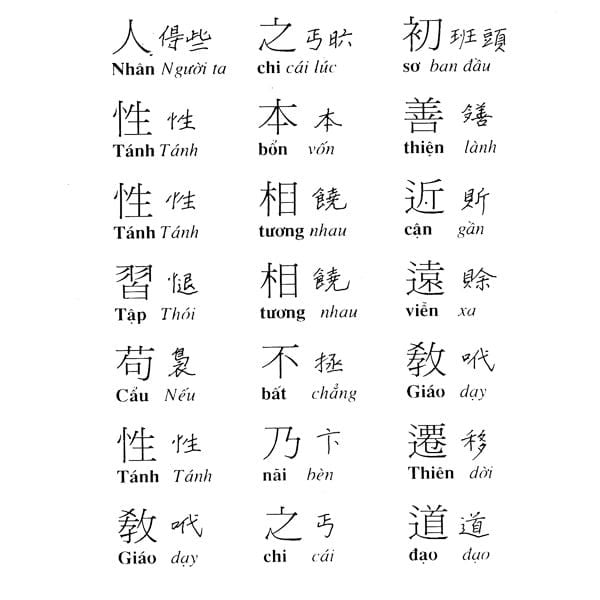 人 得些 之 丐𣅶 初 班頭
Nhân Người ta chi cái lúc sơ ban đầu
性 性 本 本 善
Tánh Tánh bổn vốn thiện lành
性 性 相 饒 近 𧵆
Tánh Tánh tương nhau cận gần
習 相 饒 遠 賒
Tập Thói tương nhau viễn xa
苟 裊 不 拯 敎 𠰺
Cẩu Nếu bất chẳng Giáo dạy
性 性 乃 卞 遷 移
Tánh Tánh nãi bèn Thiên dời
敎 𠰺 之 丐 道 道
Giáo dạy chi cái đạo đạo